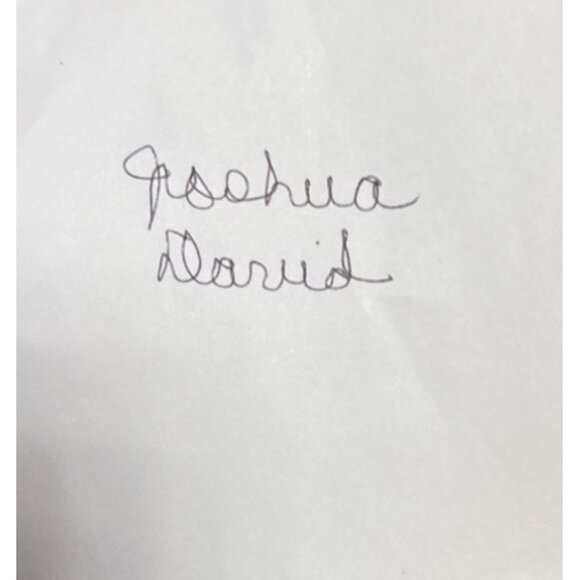 Joshua
David